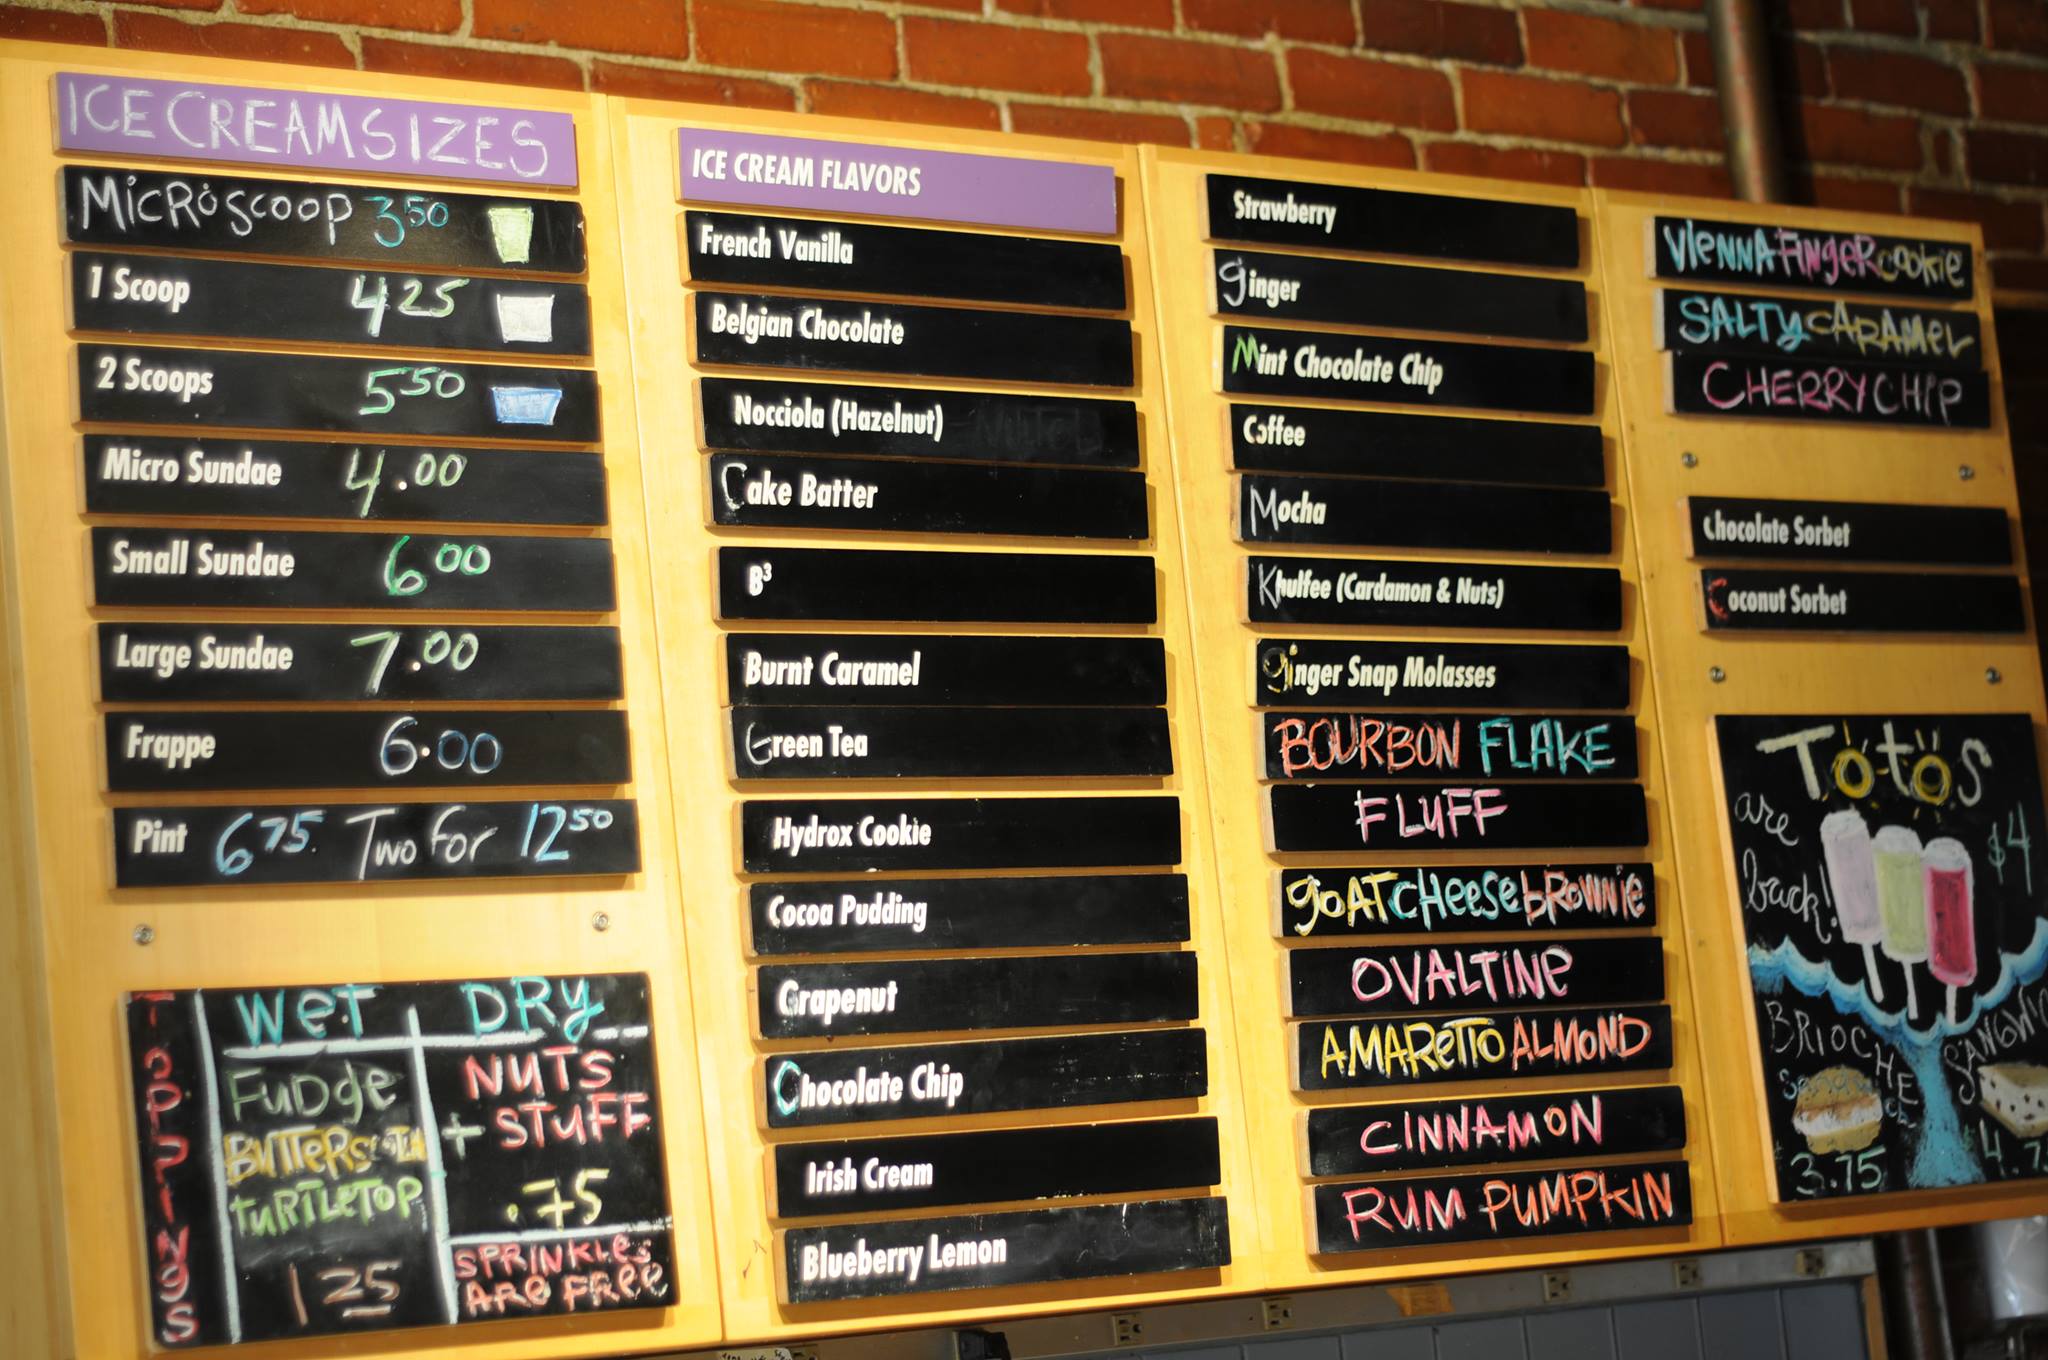 ICE CREAM SIZES
MicRoscoop 3.50
1 Scoop 4.25
2 Scoops 5.50
Micro Sundae 4.00
Small Sundae 6.00
Large Sundae 7.00
Frappe 6.00
Pint 6.75. Two for 12.50
TOPPINGS
WeT
FuDge
BuTTeRScoTch
TuRTLeTOP
1.25
DRy
NUTS
+ STUFF
.75
SPRINKLeS
ARe FRee
ICE CREAM FLAVORS
French Vanilla
Belgian Chocolate
Nocciola (Hazelnut)
Cake Batter
B³
Burnt Caramel
Green Tea
Hydrox Cookie
Cocoa Pudding
Grapenut
Chocolate Chip
Irish Cream
Blueberry Lemon
Strawberry
ginger
Mint Chocolate Chip
Coffee
Mocha
Khulfee (Cardamon & Nuts)
ginger Snap Molasses
BOURBON FLAKE
FLUFF
goAT CHeese bROWNie
OVALTINe
AMAReTTO ALMOND
CINNAMON
RUM PUMPKIN
VIENNA FINgeR cookie
SALTy cARAMeL
CHERRY CHIP
Chocolate Sorbet
Coconut Sorbet
ToToS
are
back!
$4
BRIOCHE
3.75